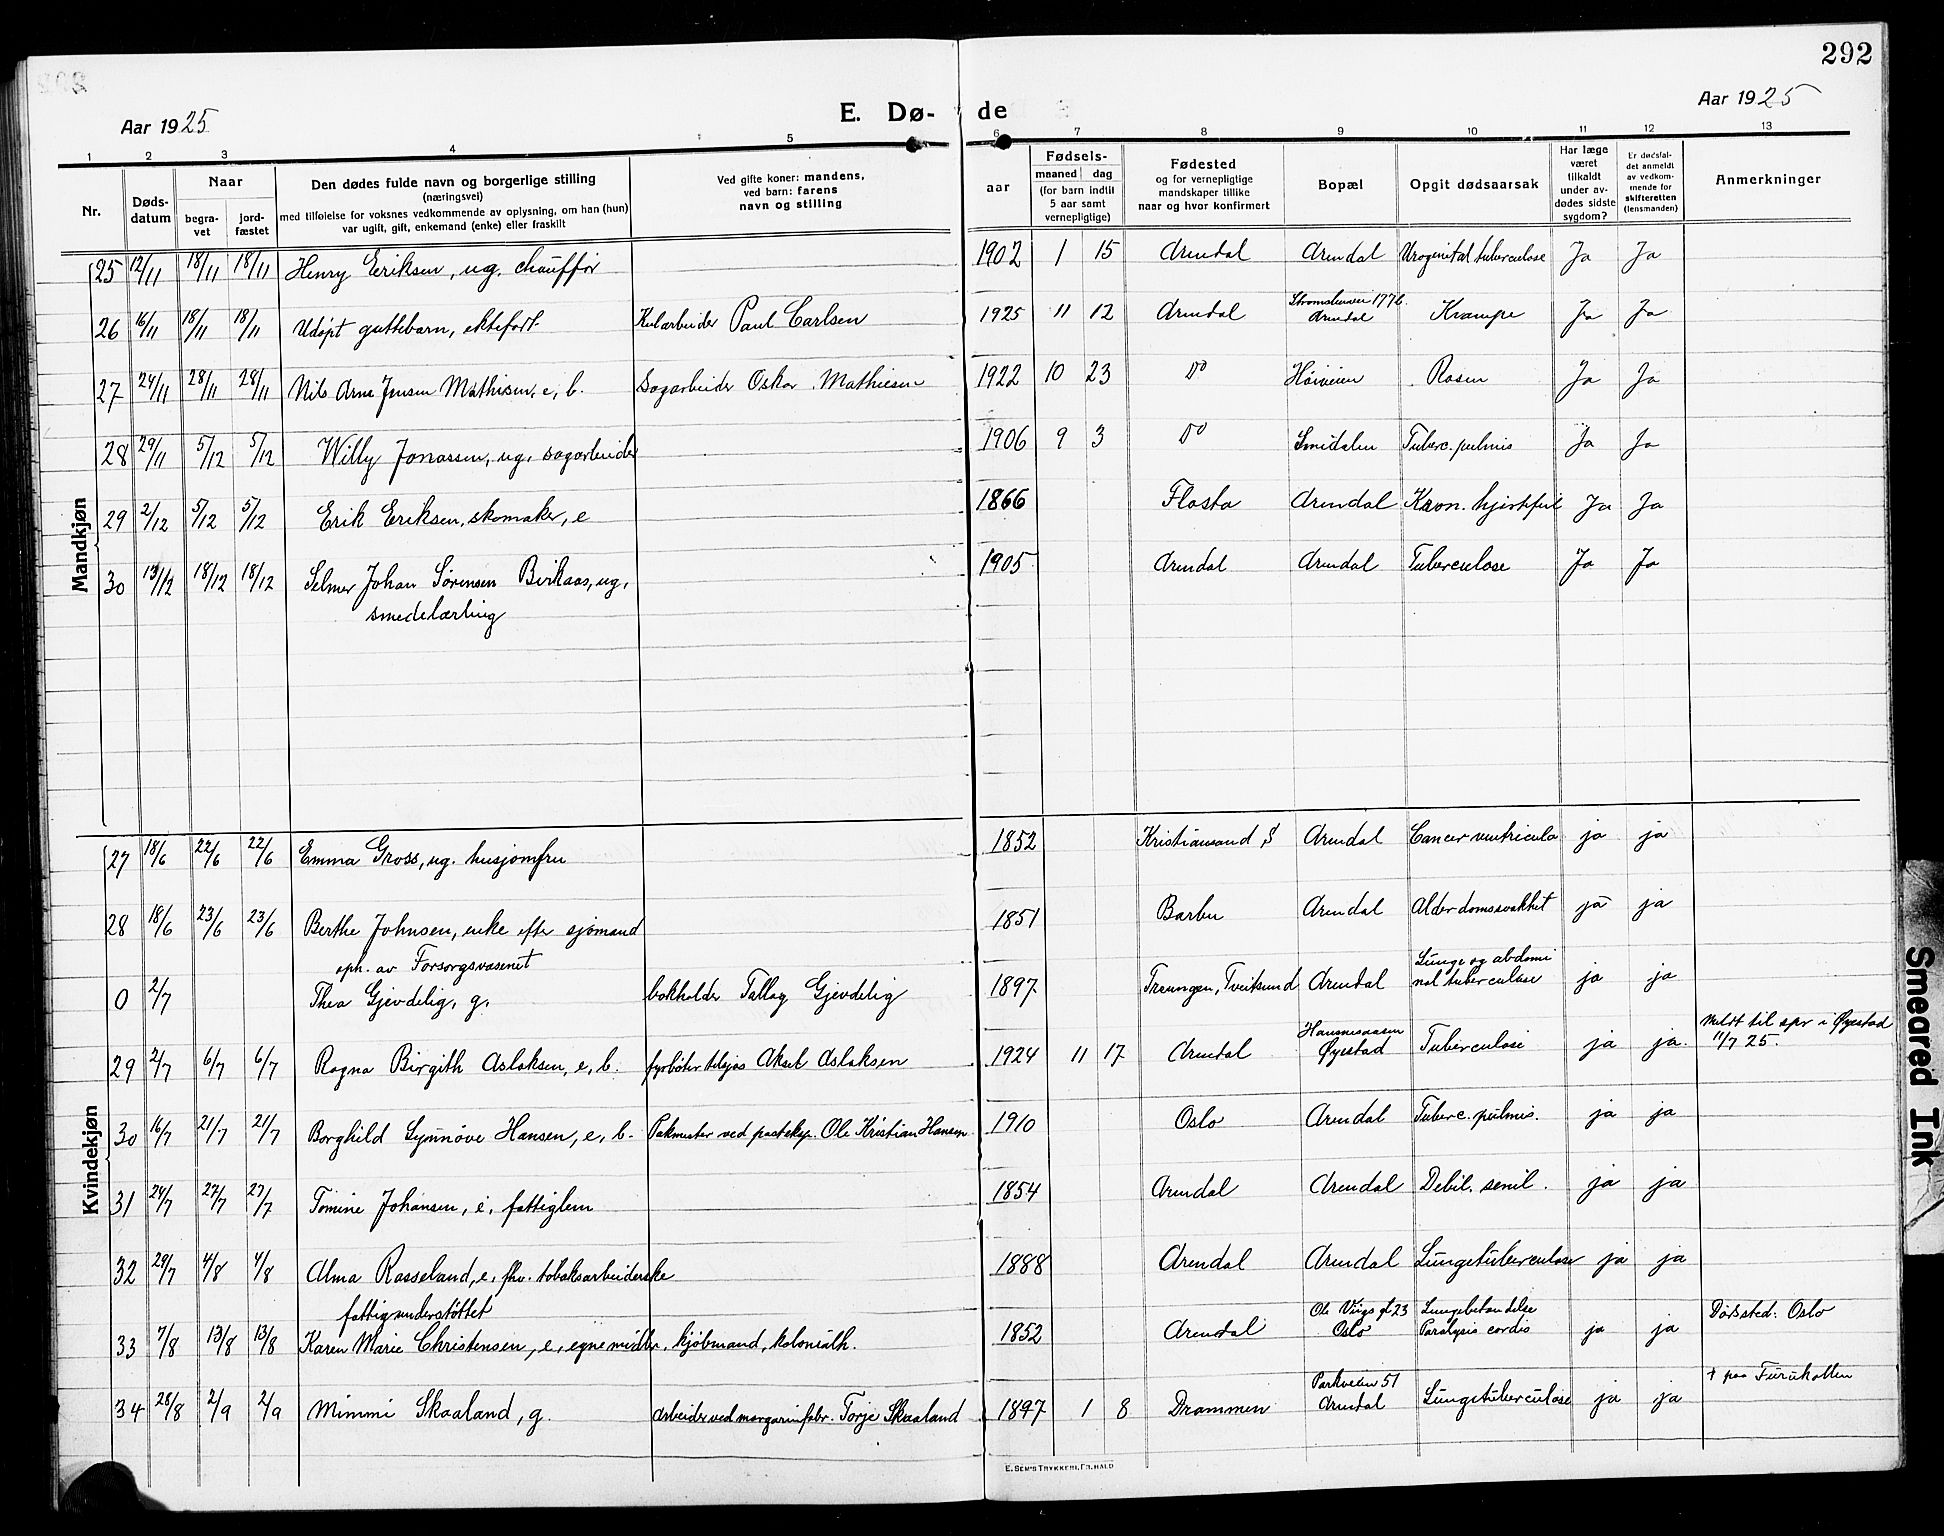 292
Aar 1925
E. Dø-
de
Aar 1925
1 2 3 4 5 6 7 8 9 10 11 12 13
Nr.
Døds-
datum
Naar
begra-
vet
jord-
fæstet
Den dødes fulde navn og borgerlige stilling
(næringsvei)
med tilføielse for voksnes vedkommende av oplysning, om han (hun)
var ugift, gift, enkemand (enke) eller fraskilt
Ved gifte koner: mandens,
ved barn: farens
navn og stilling
aar
Fødsels-
maaned dag
(for barn indtil
5 aar samt
vernepligtige)
Fødested
og for vernepligtige
mandskaper tillike
naar og hvor konfirmert
Bopæl
Opgit dødsaarsak
Har læge
været
tilkaldt
under av-
dødes sidste
sygdom?
Er dødsfal-
det anmeldt
av vedkom-
mende for
skifteretten
(lensmanden)
Anmerkninger
Mandkjøn
25 12/11 18/11 18/11 Henry Eriksen, ug. chauffør 1902 1 15 Arendal Arendal Urogenital tuberculose Ja Ja
26 16/11 18/11 18/11 Udøpt guttebarn, ektefødt. Kularbeider Paul Carlsen 1925 11 12 Arendal Strømsbuvei 177 b. Arendal Krampe Ja Ja
27 24/11 28/11 28/11 Nils Arne Jensen Mathisen, e, b. Sagarbeider Oskar Mathiesen 1922 10 23 Do Høiveien Rosen Ja Ja
28 29/11 5/12 5/12 Willy Jonassen, ug, sagarbeider 1906 9 3 Do Smidalen Tuberc. pulmis Ja Ja
29 2/12 5/12 5/12 Erik Eriksen, skomaker, e 1866 Flosta Arendal Kron. hjertefeil Ja Ja
30 13/12 18/12 18/12 Selmer Johan Sørensen Birkaas, ug, 1905 Arendal Arendal Tuberculose Ja Ja
smedelærling
Kvindekjøn
27 18/6 22/6 22/6 Emma Gross, ug. husjomfru 1852 Kristiansand S Arendal Cancer ventricula ja ja
28 18/6 23/6 23/6 Berthe Johnsen, enke efter sjømand 1851 Barbu Arendal Alderdomssvakhet ja ja
oph. av Forsorgsvæsenet
0 2/7 Thea Gjevdelig, g. bokholder Tallag Gjevdelig 1897 Treungen, Tveitsund Arendal Lunge og abdomi
nal tuberculose ja ja
29 2/7 6/7 6/7 Ragna Birgith Aslaksen, e, b. fyrbøter tilsjøs Aksel Aslaksen 1924 11 17 Arendal Øyestad Tuberculose ja ja. Meldt til spr i Øyestad
11/7 25.
30 16/7 21/7 21/7 Borghild Synnøve Hansen, e, b. Pakmester ved posteksp. Ole Kristian Hansen 1910 Oslo Arendal Tuberc. pulmis. ja ja
31 24/7 27/7 27/7 Tomine Johansen, e, fattiglem 1854 Arendal Arendal Debil. senil. ja ja
32 29/7 4/8 4/8 Alma Rosseland, e, fhv. tobaksarbeiderske 1888 Arendal Arendal Lungetuberculose ja ja
fattigunderstøttet
33 7/8 13/8 13/8 Karen Marie Christensen, e, egne midler, kjøbmand, kolonialh. 1852 Arendal Ole Vigs gt 23 Oslo Lungebetændelse
Paralysis cordis ja ja Dødssted: Oslo
34 28/8 2/9 2/9 Mimmi Skaaland, g. Arbeider ved margarinfabr. Torje Skaaland 1897 1 8 Drammen Parkveien 51 Arendal Lungetuberculose ja ja † paa Furukollen
E. SEM'S TRYKKERI, FR.HALD
Smeared Ink